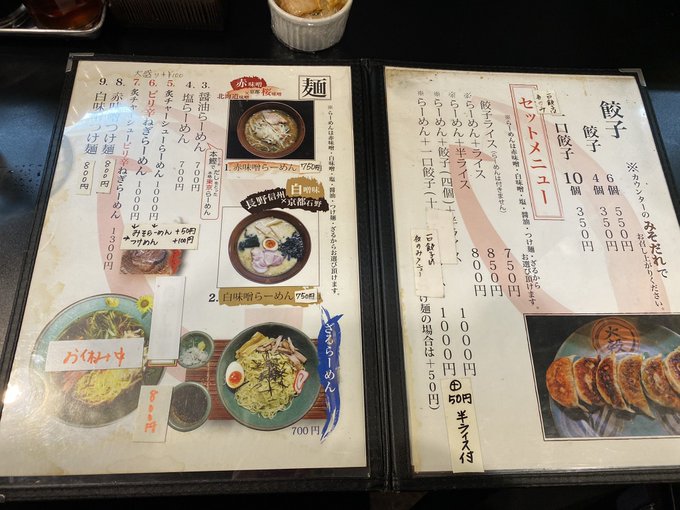 麺
※らーめんは赤味噌・白味噌・塩・醤油・つけ麺・ざるからお選び頂けます。
赤味噌
北海道味噌×京都桜味噌
1.赤味噌らーめん 750円
白味噌
長野信州×京都石野
2.白味噌らーめん 750円
ざるらーめん
700円
大盛り+¥100
3.醤油らーめん 700円
4.塩らーめん 700円
5.炙チャーシューらーめん 1000円
6.ピリ辛ねぎらーめん 1000円
7.炙チャーシューピリ辛ねぎらーめん 1300円
8.赤味噌つけ麺 800円
9.白味噌つけ麺 800円
みそらーめん +50円
つけめん +100円
お休み中
800円
餃子 6個 550円
餃子 4個 350円
一口餃子 10個 350円
※カウンターのみそだれでお召し上がりください。
セットメニュー
※らーめんは赤味噌・白味噌・塩・醤油・つけ麺・ざるからお選び頂けます。
餃子ライス(らーめんは付きません) 750円
※らーめん+ライス 850円
※らーめん+半ライス 800円
※らーめん+餃子(四個)+ 1000円
※らーめん+一口餃子(十 1000円
け麺の場合は+50円)
⊕50円 半ライス付